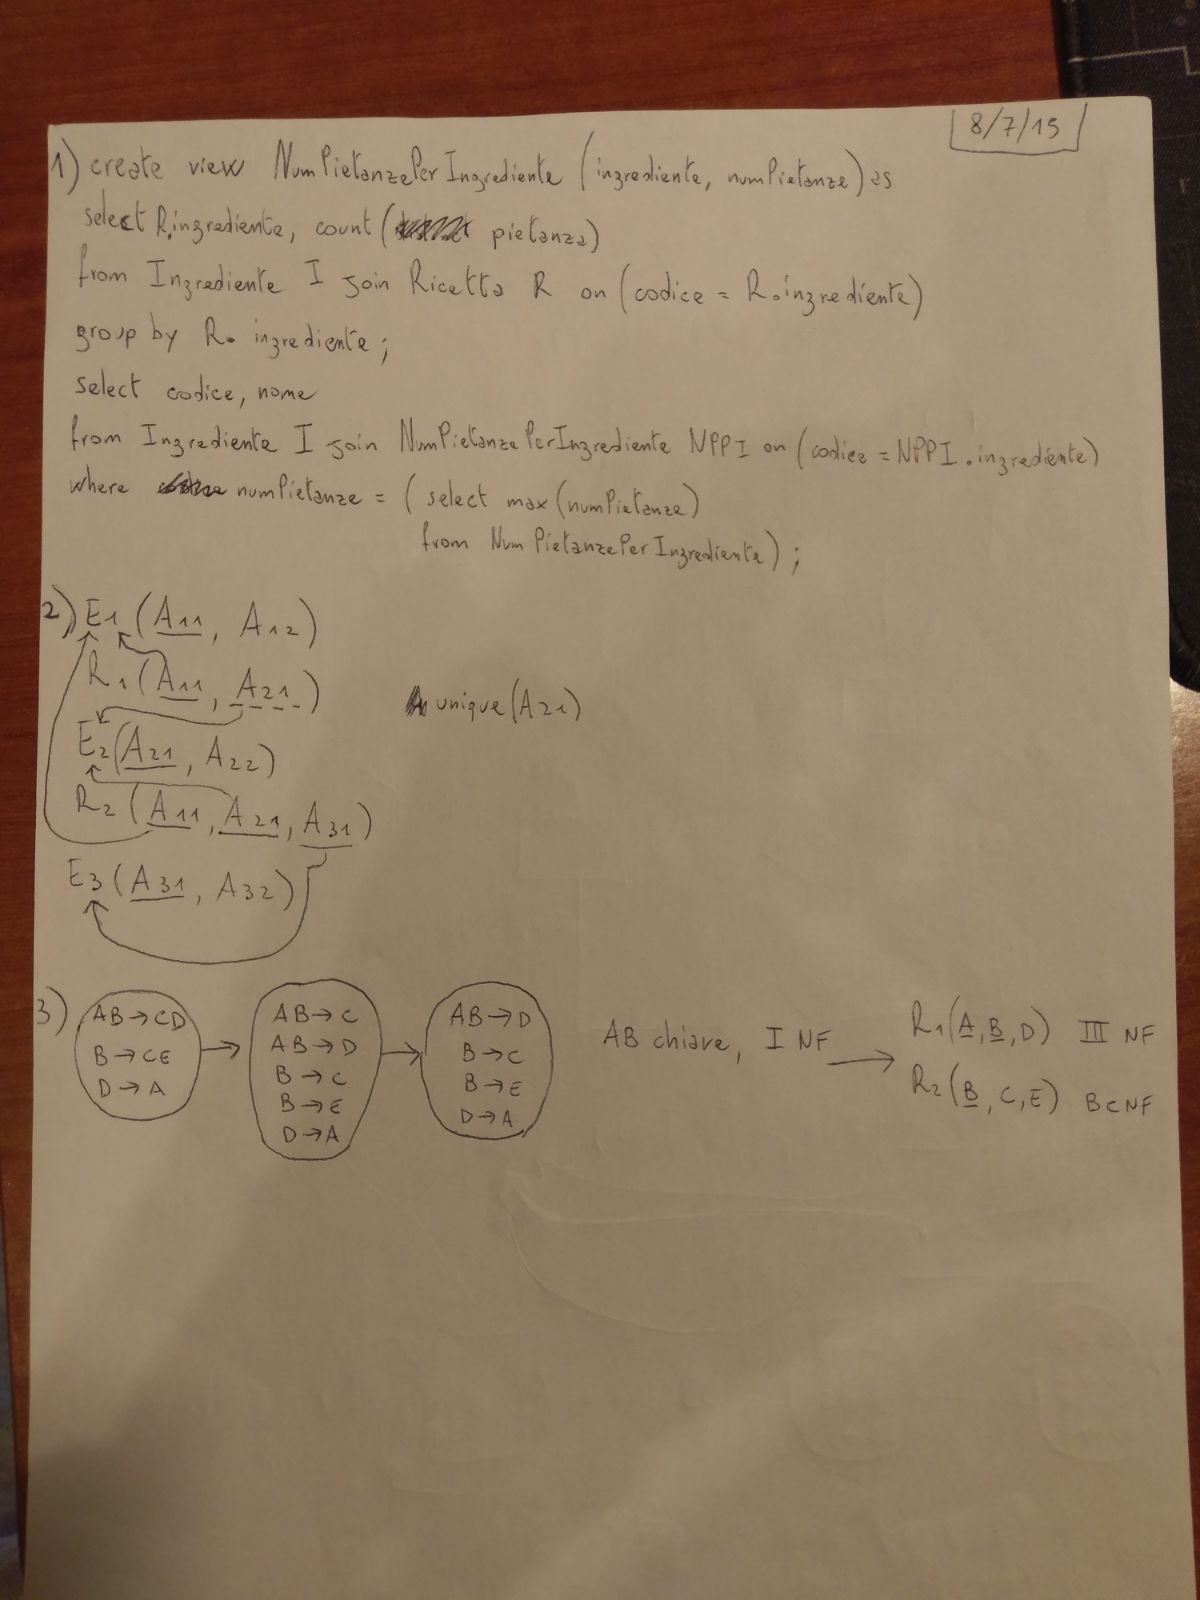 8/7/15
1) create view NumPietanzePerIngrediente (ingrediente, numPietanze) as
select R.ingrediente, count( pietanza)
from Ingrediente I join Ricetta R on (codice = R.ingrediente)
group by R. ingrediente;
select codice, nome
from Ingrediente I join NumPietanzePerIngrediente NPPI on (codice = NPPI.ingrediente)
where numPietanze = ( select max (numPietanze)
from NumPietanzePerIngrediente) ;
2) E1 (A11, A12)
R1 (A11, A21) unique (A21)
E2 (A21, A22)
R2 (A11, A21, A31)
E3 (A31, A32)
3) AB→CD
B→CE
D→A
→
AB→C
AB→D
B→C
B→E
D→A
→
AB→D
B→C
B→E
D→A
AB chiave, I NF →
R1(A,B,D) III NF
R2(B,C,E) BCNF